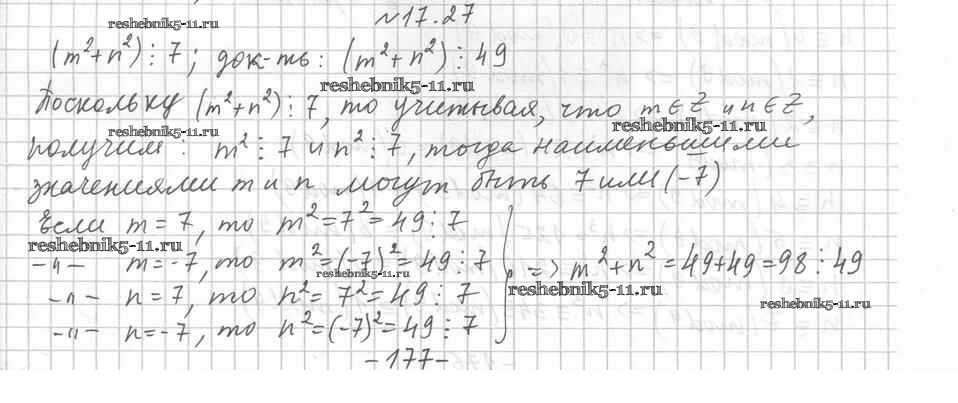 №17.27
reshebnik5-11.ru
(m²+n²)⋮7; док-ть: (m²+n²)⋮49
reshebnik5-11.ru
Поскольку (m²+n²)⋮7, то учитывая, что m∈Z и n∈Z,
reshebnik5-11.ru
reshebnik5-11.ru
получим: m²⋮7 и n²⋮7, тогда наименьшими
значениями m и n могут быть 7 или (-7)
Если m=7, то m²=7²=49⋮7
reshebnik5-11.ru
-"- m=-7, то m²=(-7)²=49⋮7
reshebnik5-11.ru
=> m²+n²=49+49=98⋮49
reshebnik5-11.ru
-"- n=7, то n²=7²=49⋮7
reshebnik5-11.ru
-"- n=-7, то n²=(-7)²=49⋮7
-177-